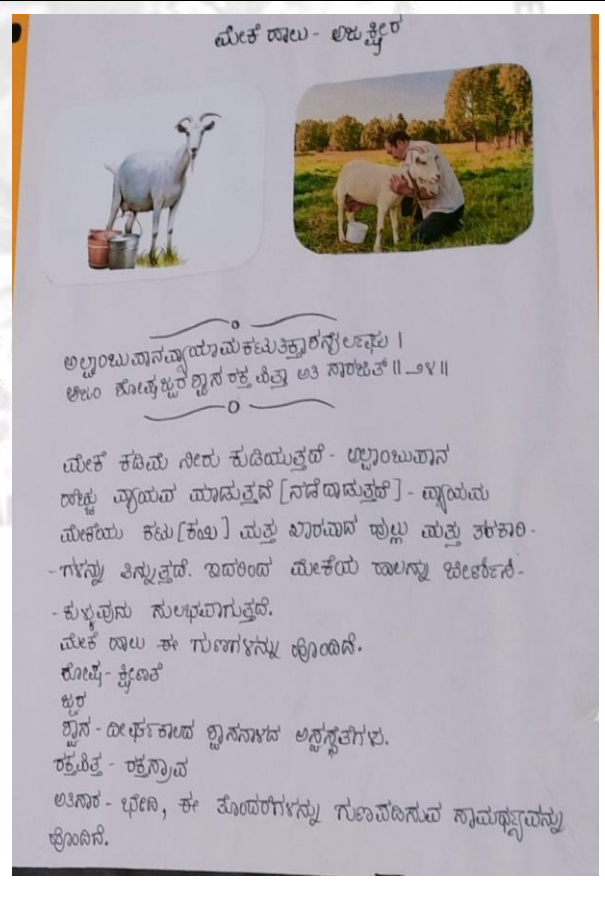 ಮೇಕೆ ಹಾಲು - ಅಜಕ್ಷೀರ
ಅಲ್ಪಾಂಬುಪಾನವ್ಯಾಯಾಮಕಟುತಿಕ್ತಾಶನೈರ್ಲಘು |
ಆಜಂ ಶೋಷಜ್ವರಶ್ವಾಸರಕ್ತ ಪಿತ್ತಾ ಅತಿ ಸಾರಜಿತ್ || ೨೪ ||
ಮೇಕೆ ಕಡಿಮೆ ನೀರು ಕುಡಿಯುತ್ತದೆ - ಅಲ್ಪಾಂಬುಪಾನ
ಹೆಚ್ಚು ವ್ಯಾಯವ ಮಾಡುತ್ತದೆ [ನಡೆದಾಡುತ್ತದೆ] - ವ್ಯಾಯಮ
ಮೇಕೆಯು ಕಟು [ಕಹಿ] ಮತ್ತು ಖಾರವಾದ ಹುಲ್ಲು ಮತ್ತು ತರಕಾರಿ -
- ಗಳನ್ನು ತಿನ್ನುತ್ತದೆ. ಇದರಿಂದ ಮೇಕೆಯ ಹಾಲನ್ನು ಜೀರ್ಣಿಸಿ -
- ಕುಳ್ಳುವುದು ಸುಲಭವಾಗುತ್ತದೆ.
ಮೇಕೆ ಹಾಲು ಈ ಗುಣಗಳನ್ನು ಹೊಂದಿದೆ.
ಶೋಷ - ಕ್ಷೀಣತೆ
ಜ್ವರ
ಶ್ವಾಸ - ದೀರ್ಘಕಾಲದ ಶ್ವಾಸನಾಳದ ಅಸ್ವಸ್ಥತೆಗಳು.
ರಕ್ತಪಿತ್ತ - ರಕ್ತಸ್ರಾವ
ಅತಿಸಾರ - ಭೇದಿ, ಈ ತೊಂದರೆಗಳನ್ನು ಗುಣಪಡಿಸುವ ಸಾಮರ್ಥ್ಯವನ್ನು
ಹೊಂದಿದೆ.